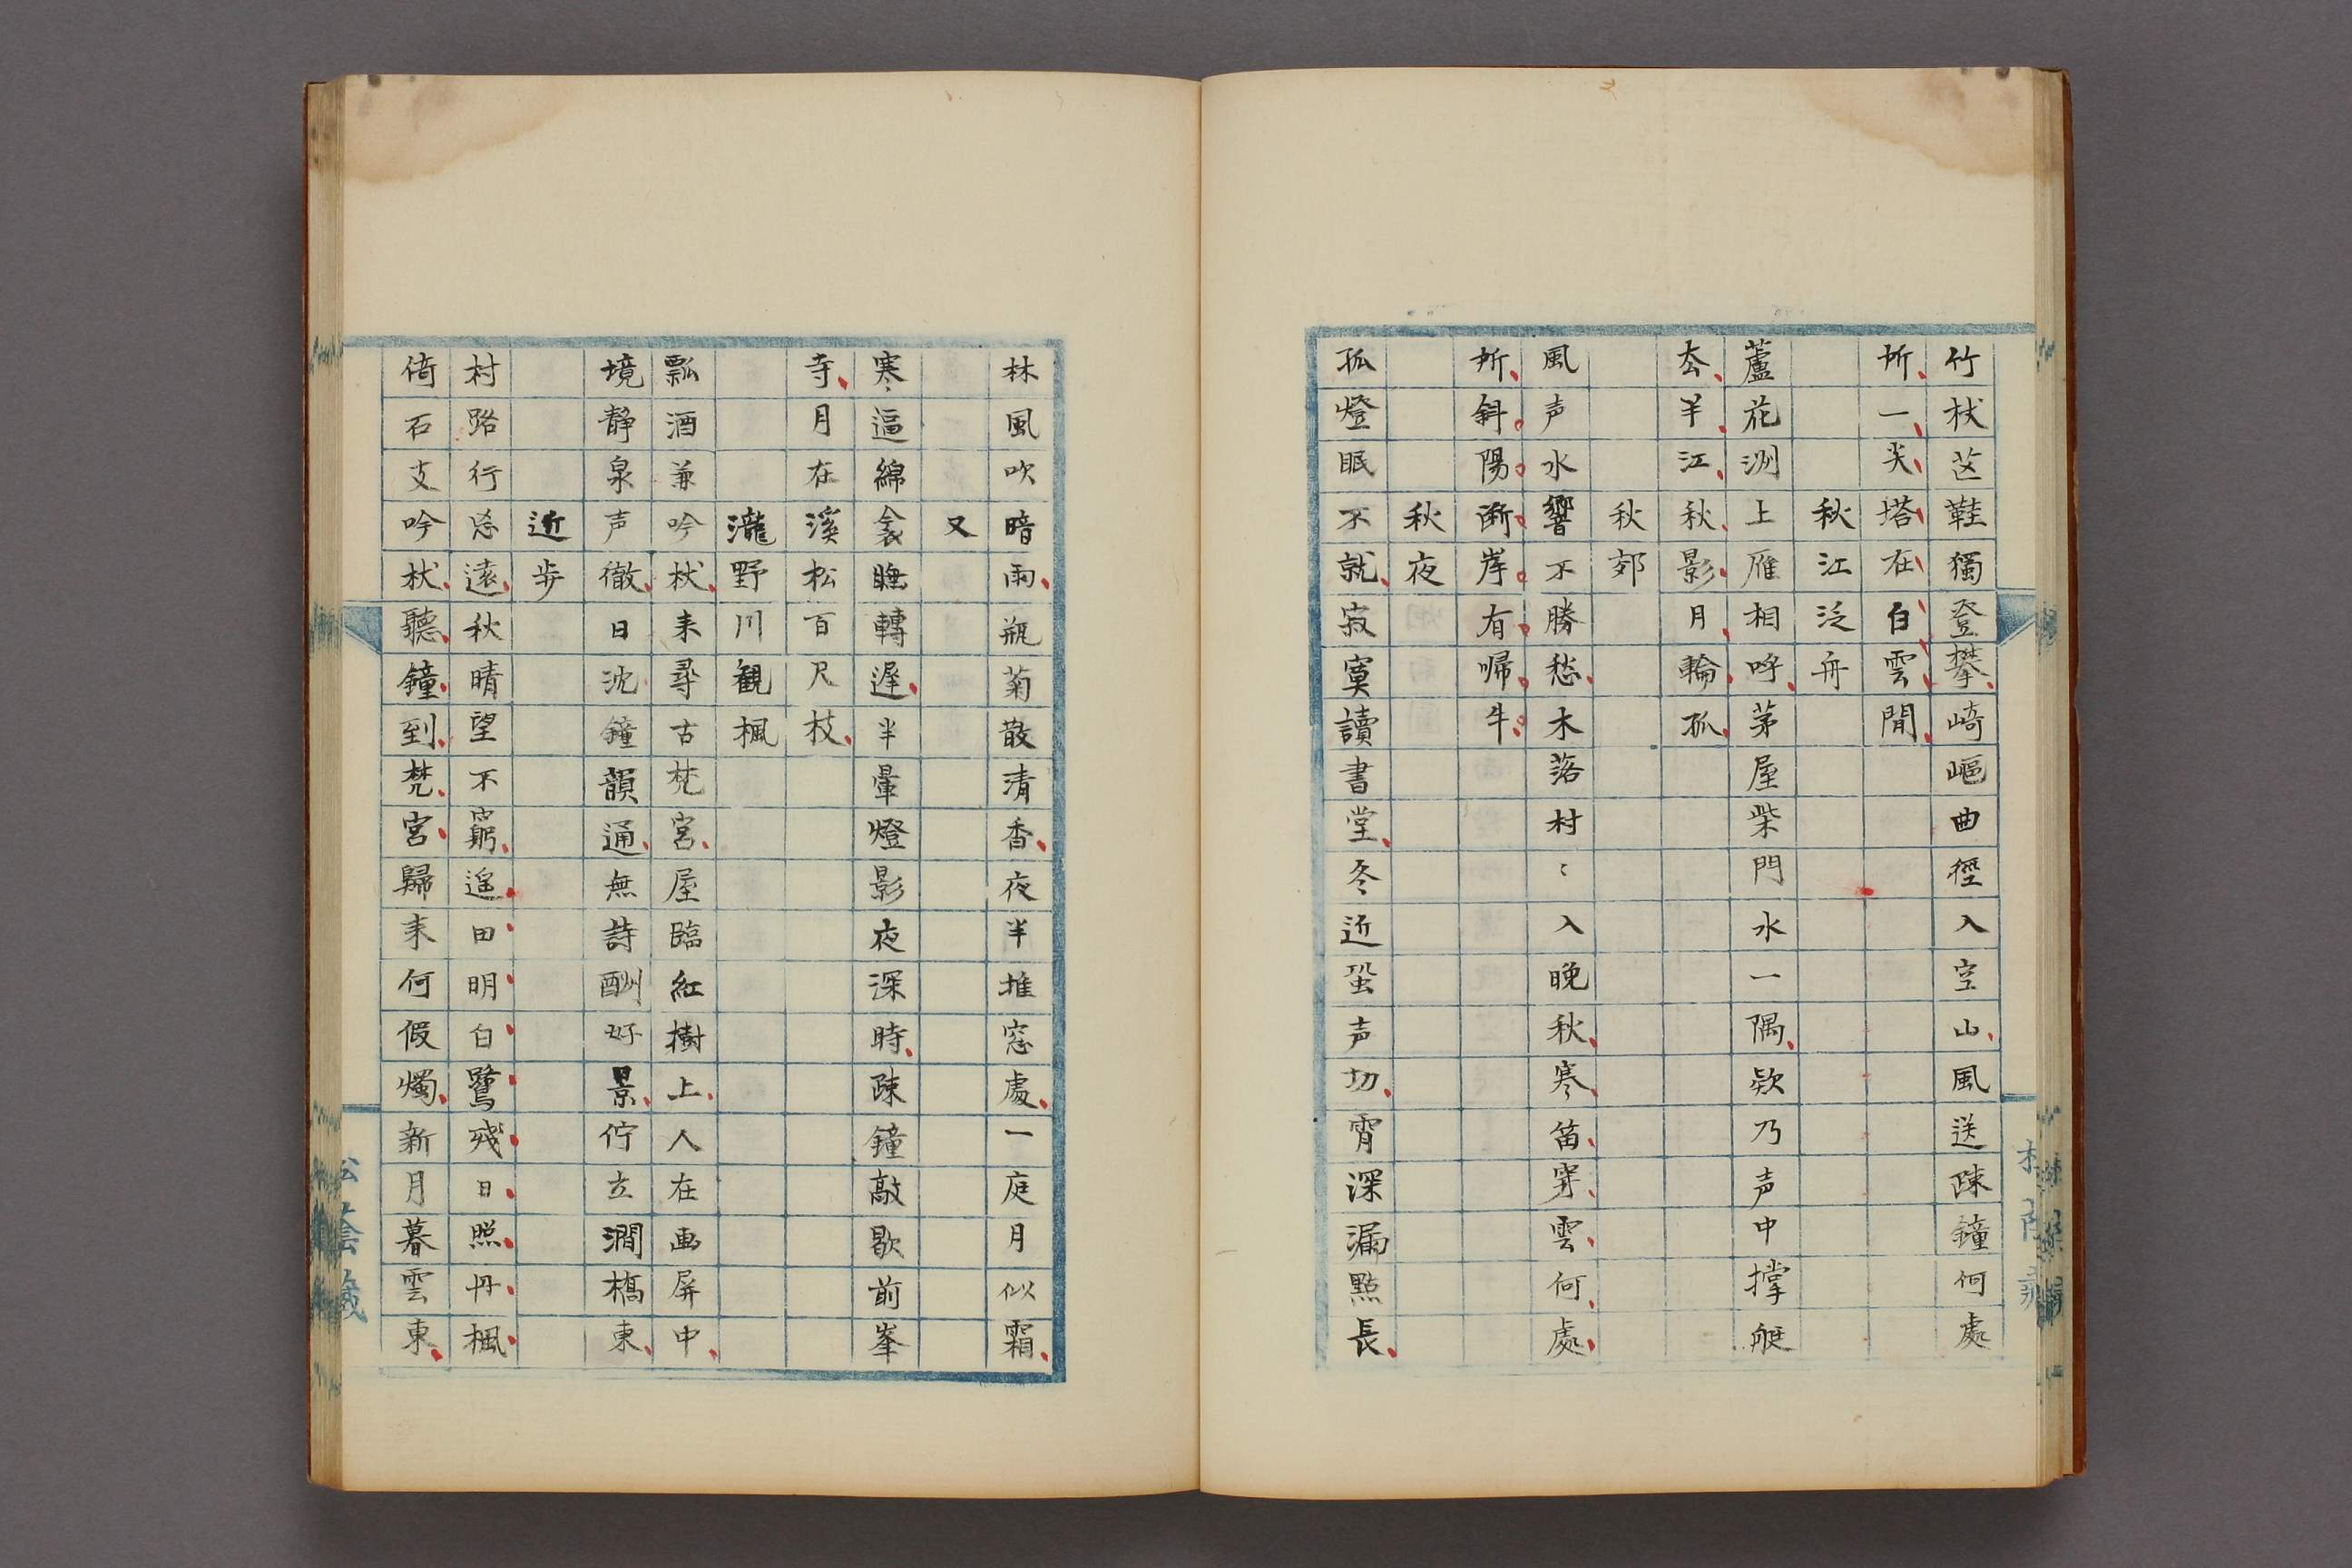 竹杖芒鞋獨登攀崎嶇曲徑入空山風送疎鐘何處
所一尖塔在白雲間
秋江泛舟
蘆花洲上雁相呼茅屋柴門水一隅欸乃声中撐艇
去半江秋影月輪孤
秋郊
風声水響不勝愁木落村〻入晚秋寒笛穿雲何處
所斜陽断岸有帰牛
秋夜
孤燈眠不就寂寞讀書堂冬近蛩声切霄深漏點長
林風吹暗雨瓶菊散清香夜半推窓處一庭月似霜
又
寒逼綿衾睡轉遲半暈燈影夜深時疎鐘敲歇前峯
寺月在溪松百尺枝
瀧野川観楓
瓢酒兼吟杖来尋古梵宮屋臨紅樹上人在画屏中
境静泉声徹日沈鐘韻通無詩酬好景佇立澗橋東
近歩
村路行忘遠秋晴望不窮遥田明白鷺残日照丹楓
倚石支吟杖聽鐘到梵宮歸来何假燭新月暮雲東
松蔭蔵